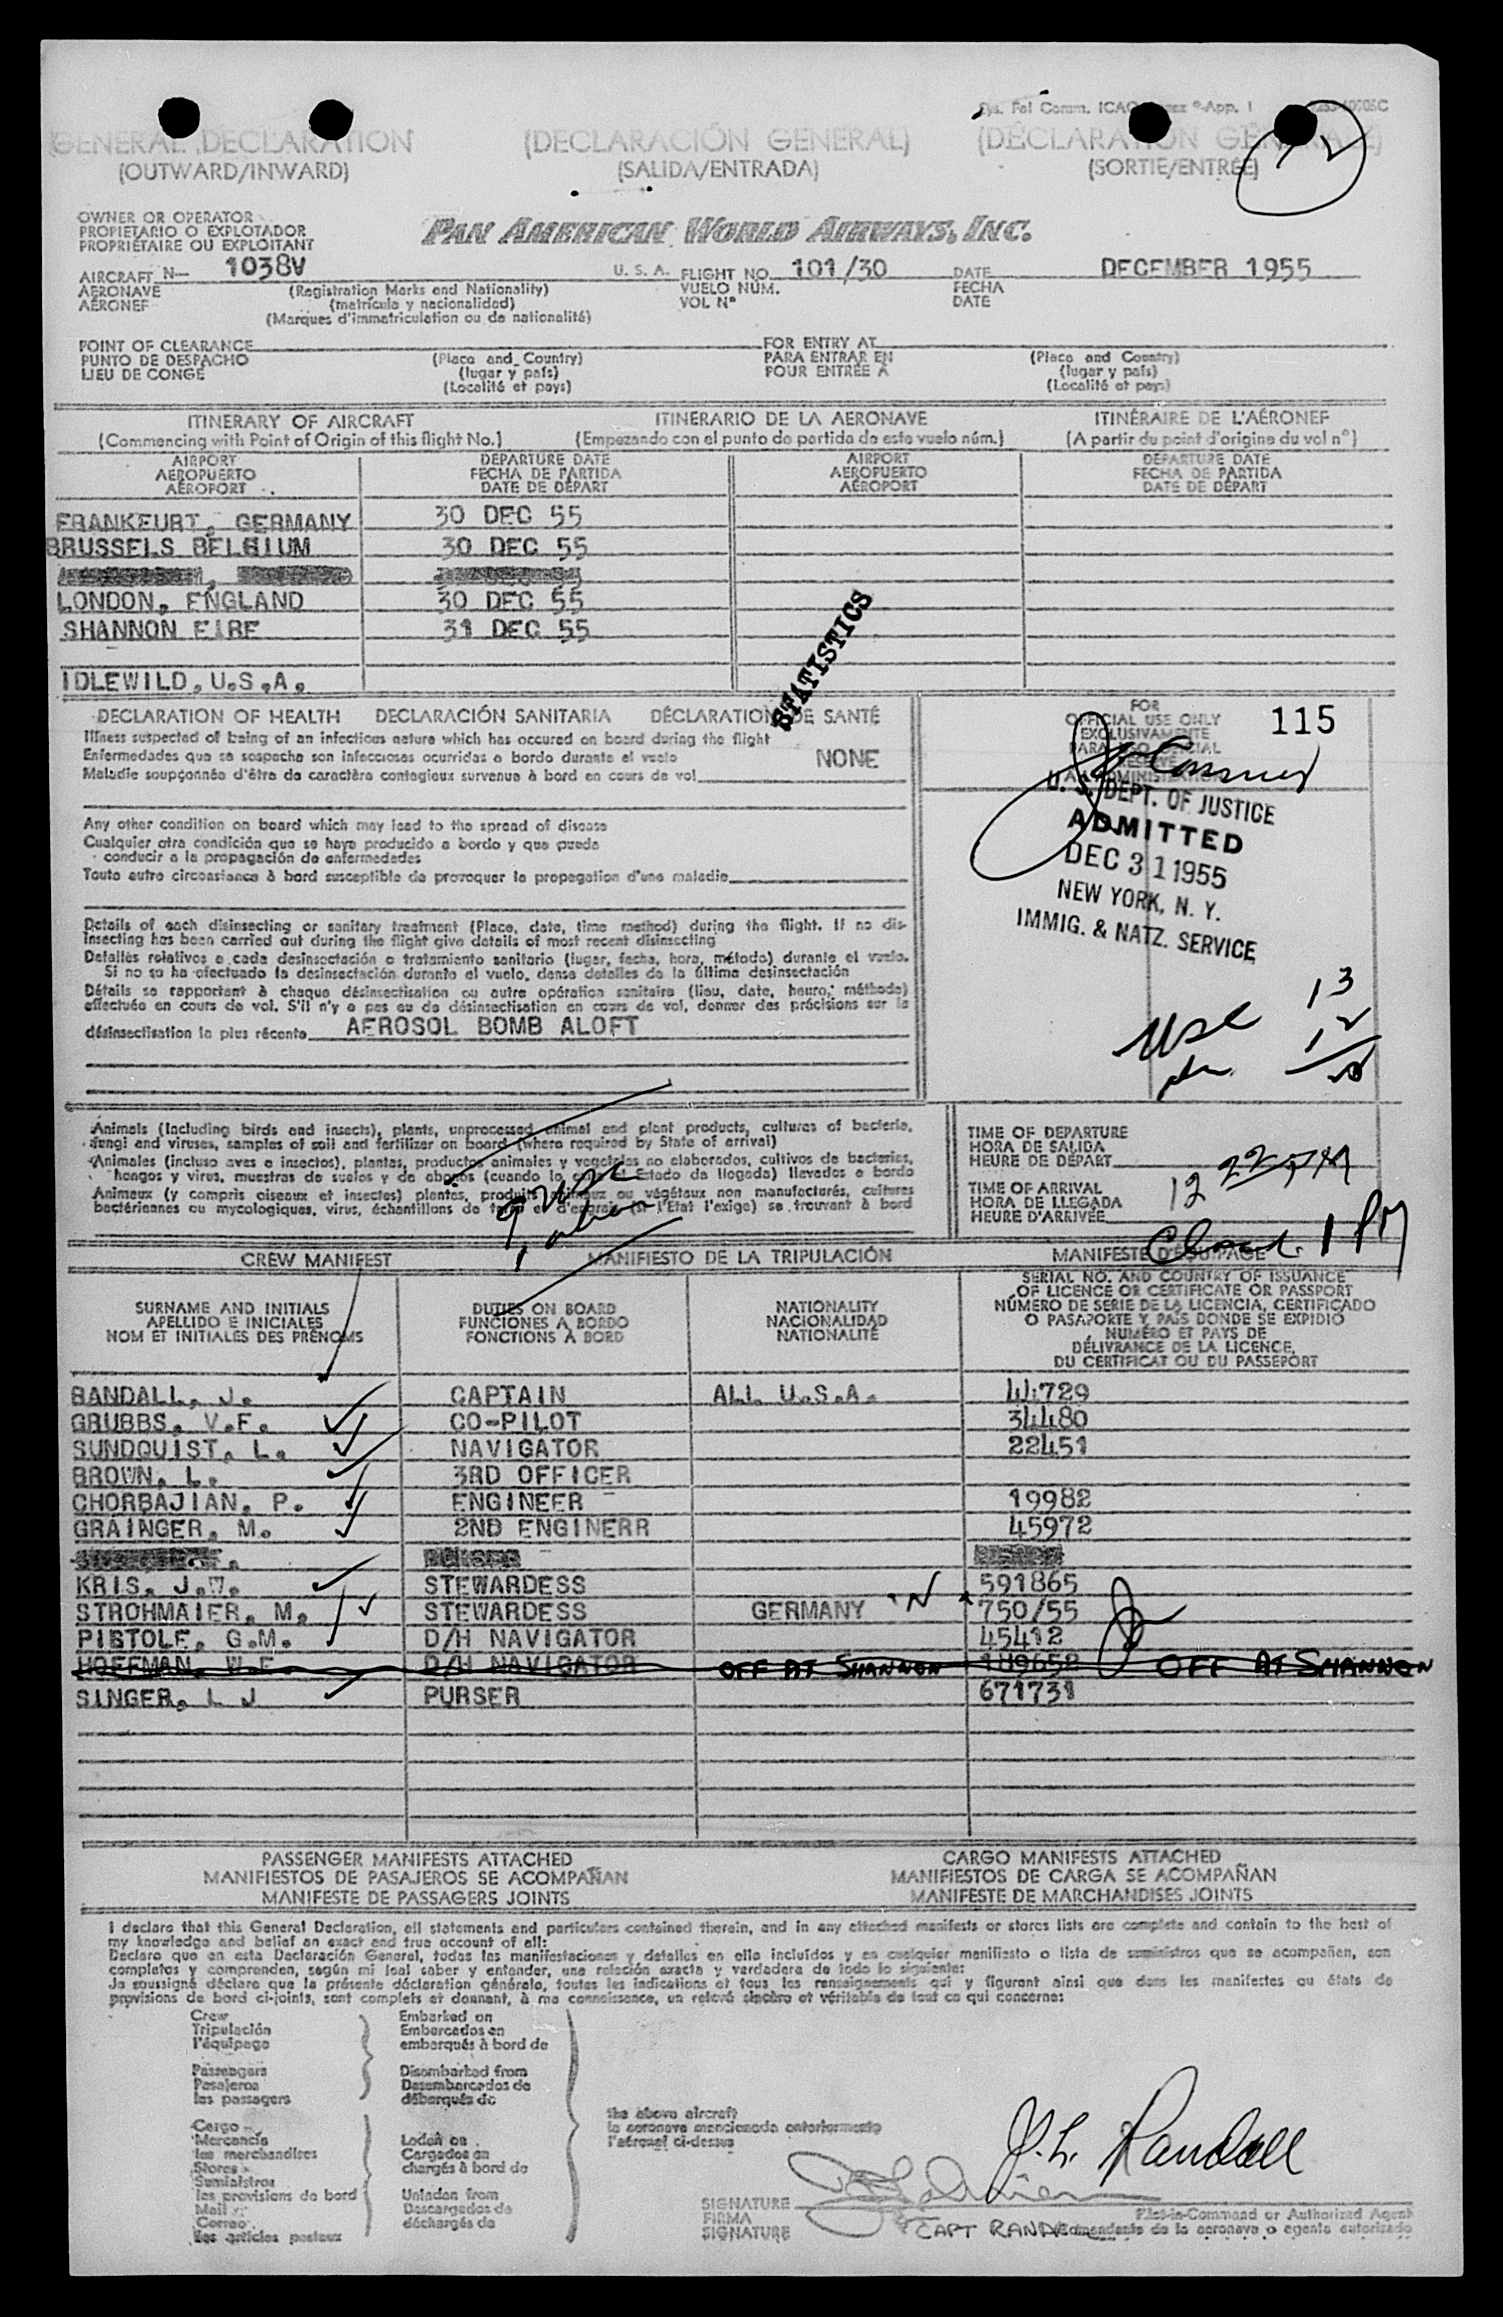 GENERAL DECLARATION (DECLARACIÓN GENERAL) (DÉCLARATION GÉNÉRALE)
(OUTWARD/INWARD) (SALIDA/ENTRADA) (SORTIE/ENTRÉE)
OWNER OR OPERATOR
PROPIETARIO O EXPLOTADOR
PROPRIÉTAIRE OU EXPLOITANT
PAN AMERICAN WORLD AIRWAYS, INC.
AIRCRAFT N- 1038V U. S. A. FLIGHT NO. 101/30 DATE DECEMBER 1955
AERONAVE (Registration Marks and Nationality) VUELO NÚM. FECHA
AÉRONEF (matrícula y nacionalidad) VOL Nº DATE
(Marques d'immatriculation ou de nationalité)
POINT OF CLEARANCE FOR ENTRY AT
PUNTO DE DESPACHO (Place and Country) PARA ENTRAR EN (Place and Country)
LIEU DE CONGÉ (lugar y país) POUR ENTRÉE A (lugar y país)
(Localité et pays) (Localité et pays)
ITINERARY OF AIRCRAFT ITINERARIO DE LA AERONAVE ITINÉRAIRE DE L'AÉRONEF
(Commencing with Point of Origin of this flight No.) (Empezando con el punto de partida de este vuelo núm.) (A partir du point d'origine du vol nº)
AIRPORT DEPARTURE DATE AIRPORT DEPARTURE DATE
AEROPUERTO FECHA DE PARTIDA AEROPUERTO FECHA DE PARTIDA
AÉROPORT DATE DE DÉPART AÉROPORT DATE DE DÉPART
FRANKFURT, GERMANY 30 DEC 55
BRUSSELS BELGIUM 30 DEC 55
LONDON, ENGLAND 30 DEC 55
SHANNON EIRE 31 DEC 55
IDLEWILD, U.S.A.
STATISTICS
DECLARATION OF HEALTH DECLARACIÓN SANITARIA DÉCLARATION DE SANTÉ
Illness suspected of being of an infectious nature which has occured on board during the flight
Enfermedades que se sospecha son infecciosas ocurridas a bordo durante el vuelo NONE
Maladie soupçonnée d'être de caractère contagieux survenue à bord en cours de vol
Any other condition on board which may lead to the spread of disease
Cualquier otra condición que se haya producido a bordo y que pueda
conducir a la propagación de enfermedades
Toute autre circonstance à bord susceptible de provoquer la propagation d'une maladie
Details of each disinsecting or sanitary treatment (Place, date, time method) during the flight. If no dis-
insecting has been carried out during the flight give details of most recent disinsecting
Detalles relativos a cada desinsectación o tratamiento sanitario (lugar, fecha, hora, método) durante el vuelo.
Si no se ha efectuado la desinsectación durante el vuelo, dense detalles de la última desinsectación
Détails se rapportant à chaque désinsectisation ou autre opération sanitaire (lieu, date, heure, méthode)
effectuée en cours de vol. S'il n'y a pas eu de désinsectisation en cours de vol, donner des précisions sur la
désinsectisation la plus récente AEROSOL BOMB ALOFT
FOR
OFFICIAL USE ONLY 115
EXCLUSIVAMENTE
U. S. DEPT. OF JUSTICE
ADMITTED
DEC 31 1955
NEW YORK, N. Y.
IMMIG. & NATZ. SERVICE
USC 13
12
Animals (Including birds and insects), plants, unprocessed animal and plant products, cultures of bacteria,
fungi and viruses, samples of soil and fertilizer on board (where required by State of arrival)
Animales (incluso aves e insectos), plantas, productos animales y vegetales no elaborados, cultivos de bacterias,
hongos y virus, muestras de suelos y de abonos (cuando lo exija el Estado de llegada) llevados a bordo
Animaux (y compris oiseaux et insectes) plantes, produits animaux ou végétaux non manufacturés, cultures
bactériennes ou mycologiques, virus, échantillons de terre et d'engrais (si l'Etat l'exige) se trouvant à bord
9 USC
1 alien
TIME OF DEPARTURE
HORA DE SALIDA
HEURE DE DÉPART
TIME OF ARRIVAL 12 22 PM
HORA DE LLEGADA
HEURE D'ARRIVÉE
Cleared 1 PM
CREW MANIFEST MANIFIESTO DE LA TRIPULACIÓN MANIFESTE D'ÉQUIPAGE
SURNAME AND INITIALS DUTIES ON BOARD NATIONALITY SERIAL NO. AND COUNTRY OF ISSUANCE
APELLIDO E INICIALES FUNCIONES A BORDO NACIONALIDAD OF LICENCE OR CERTIFICATE OR PASSPORT
NOM ET INITIALES DES PRÉNOMS FONCTIONS À BORD NATIONALITÉ NÚMERO DE SERIE DE LA LICENCIA, CERTIFICADO
O PASAPORTE Y PAÍS DONDE SE EXPIDIÓ
NUMÉRO ET PAYS DE
DÉLIVRANCE DE LA LICENCE,
DU CERTIFICAT OU DU PASSEPORT
RANDALL, J. CAPTAIN ALL U.S.A. 44729
GRUBBS, V.F. CO-PILOT 34480
SUNDQUIST, L. NAVIGATOR 22451
BROWN, L. 3RD OFFICER
CHORBAJIAN, P. ENGINEER 19982
GRAINGER, M. 2ND ENGINERR 45972
KRIS, J.W. STEWARDESS 591865
STROHMAIER, M. STEWARDESS GERMANY 750/55
PISTOLE, G.M. D/H NAVIGATOR 45412
HOFFMAN, W.F. D/H NAVIGATOR OFF AT SHANNON 189658 OFF AT SHANNON
SINGER, L J PURSER 671731
PASSENGER MANIFESTS ATTACHED CARGO MANIFESTS ATTACHED
MANIFIESTOS DE PASAJEROS SE ACOMPAÑAN MANIFIESTOS DE CARGA SE ACOMPAÑAN
MANIFESTE DE PASSAGERS JOINTS MANIFESTE DE MARCHANDISES JOINTS
I declare that this General Declaration, all statements and particulars contained therein, and in any attached manifests or stores lists are complete and contain to the best of
my knowledge and belief an exact and true account of all:
Declaro que en esta Declaración General, todas las manifestaciones y detalles en ella incluídos y en cualquier manifiesto o lista de suministros que se acompañan, son
completos y comprenden, según mi leal saber y entender, una relación exacta y verdadera de todo lo siguiente:
Je soussigné déclare que la présente déclaration générale, toutes les indications et tous les renseignements qui y figurent ainsi que dans les manifestes ou états de
provisions de bord ci-joints, sont complets et donnent, à ma connaissance, un relevé sincère et véritable de tout ce qui concerne:
Crew Embarked on
Tripulación Embarcados en
l'équipage embarqués à bord de
Passengers Disembarked from
Pasajeros Desembarcados de
les passagers débarqués de
Cargo
Mercancía Loden on
les marchandises Cargados en
Stores chargés à bord de
Suministros
les provisions de bord Unladen from
Mail Descargados de
Correo déchargés de
les articles postaux
the above aircraft
la aeronave mencionada anteriormente
l'aéronef ci-dessus
J.L. Randall
SIGNATURE Pilot-in-Command or Authorized Agent
FIRMA CAPT RANDALL Comandante de la aeronave o agente autorizado
SIGNATURE